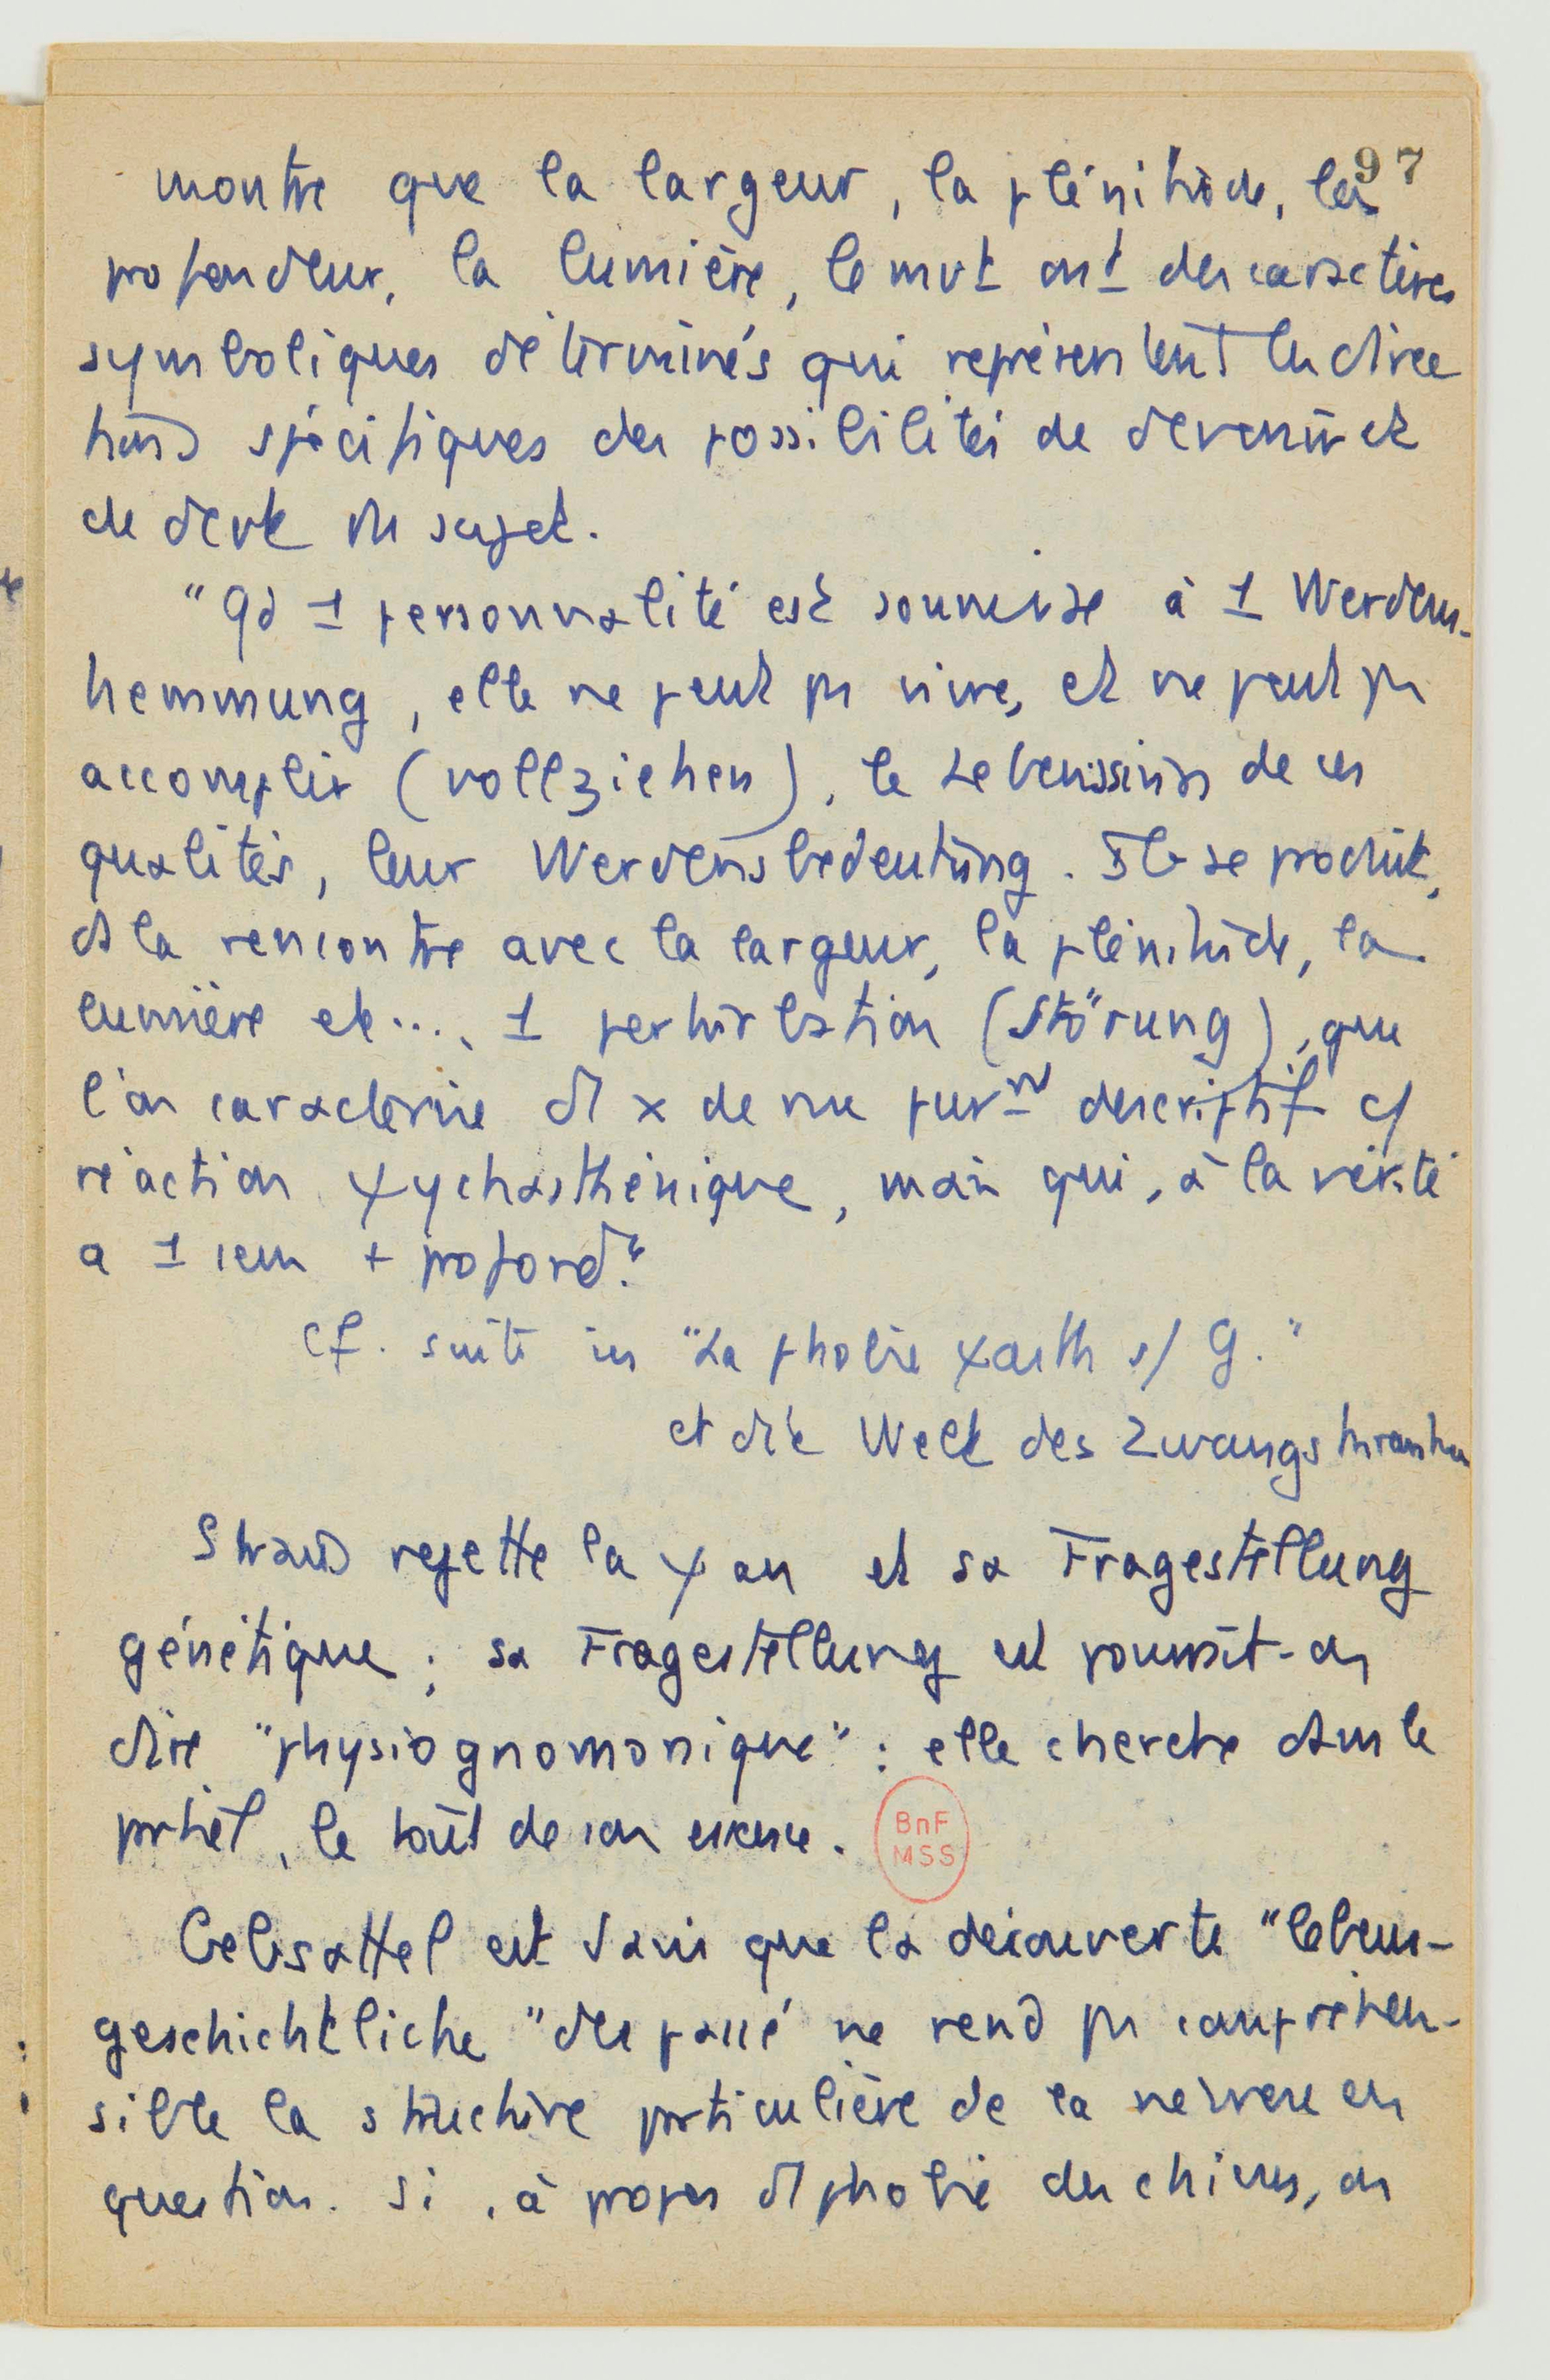 97
montre que la largeur, la plénitude, la
profondeur, la lumière, le mvt ont des caractères
symboliques déterminés qui représentent les direc
tions spécifiques des possibilités de devenir et
de devt du sujet.
"Qd 1 personnalité est soumise à 1 Werdens-
hemmung, elle ne peut ps vivre, et ne peut ps
accomplir (vollziehen), le Lebenssinn de ces
qualités, leur Werdensbedeutung. Il se produit,
ds la rencontre avec la largeur, la plénitude, la
lumière etc..., 1 perturbation (Störung), que
l'on caractérise d'1 x de vue purmt descriptif c/
réaction ψychasthénique, mais qui, à la vérité
a 1 sens + profond."
cf. suite in "La phobie ψasth s/ G."
et die Welt des Zwangskranken
Straus rejette la ψan et sa Fragestellung
génétique ; sa Fragestellung est pourrait-on
dire "physiognomonique" : elle cherche dans le
portrait, le tout de son essence.
BnF
MSS
Gebsattel est d'avis que la découverte "lebens-
geschichtliche" du passé ne rend ps compréhen-
sible la structure particulière de la névrose en
question. Si, à propos d'1 phobie des chiens, on